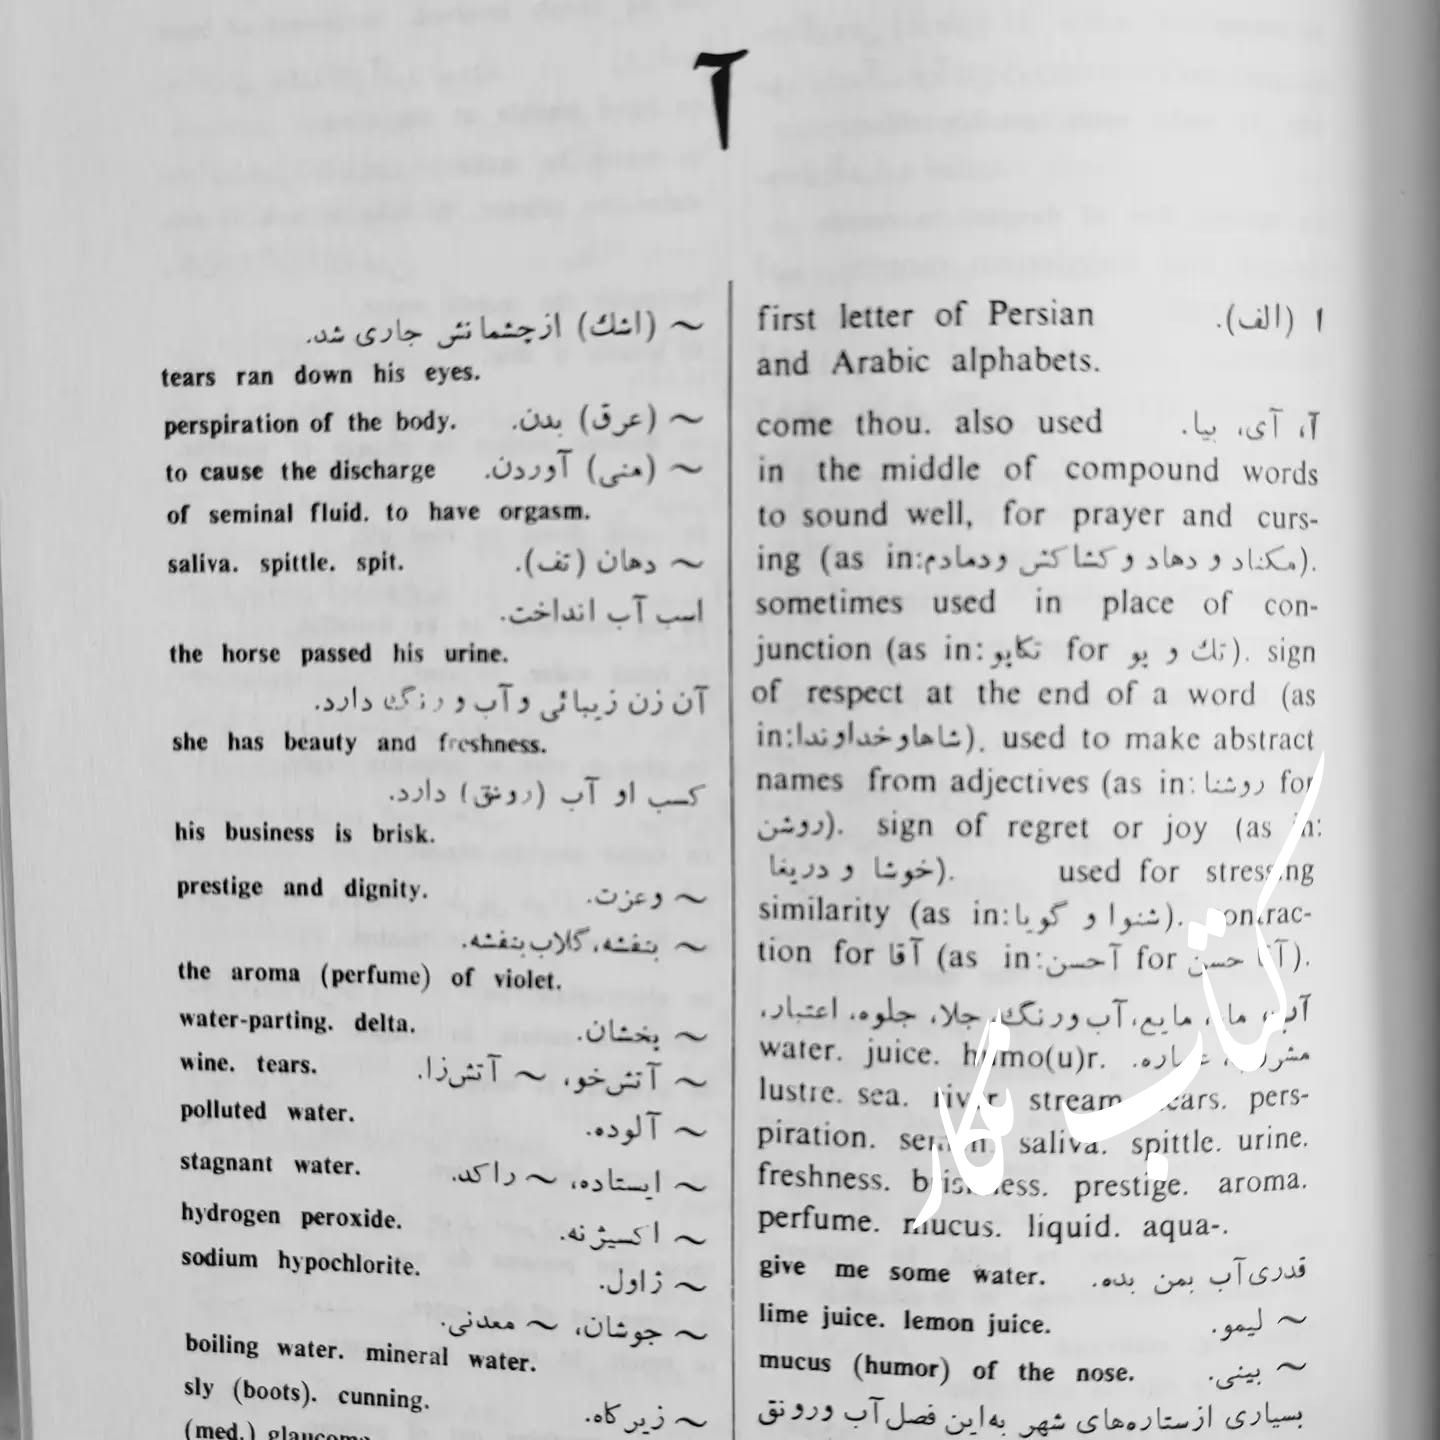 آ
ا (الف). first letter of Persian
and Arabic alphabets.
آ، آی، بیا. come thou. also used
in the middle of compound words
to sound well, for prayer and curs-
ing (as in: مکناد و دهاد و کشاکش ودمادم).
sometimes used in place of con-
junction (as in: تکاپو for تك و پو). sign
of respect at the end of a word (as
in: شاها و خداوندا). used to make abstract
names from adjectives (as in: روشنا for
روشن). sign of regret or joy (as in:
خوشا و دریغا). used for stressing
similarity (as in: شنوا و گویا). contrac-
tion for آقا (as in: آحسن for آقا حسن).
آب، ماء، مایع، آب ورنگ، جلا، جلوه، اعتبار،
water. juice. humo(u)r. عصاره.
lustre. sea. river. stream. tears. pers-
piration. semen. saliva. spittle. urine.
freshness. briskness. prestige. aroma.
perfume. mucus. liquid. aqua-.
قدری آب بمن بده. give me some water.
~ لیمو. lime juice. lemon juice.
~ بینی. mucus (humor) of the nose.
بسیاری ازستاره‌های شهر به‌این فصل آب ورونق
~ (اشك) ازچشمانش جاری شد.
tears ran down his eyes.
~ (عرق) بدن. perspiration of the body.
~ (منی) آوردن. to cause the discharge
of seminal fluid. to have orgasm.
~ دهان (تف). saliva. spittle. spit.
اسب آب انداخت.
the horse passed his urine.
آن زن زیبائی و آب و رنگ دارد.
she has beauty and freshness.
کسب او آب (رونق) دارد.
his business is brisk.
~ وعزت. prestige and dignity.
~ بنفشه، گلاب بنفشه.
the aroma (perfume) of violet.
~ پخشان. water-parting. delta.
~ آتش‌خو، ~ آتش‌زا. wine. tears.
~ آلوده. polluted water.
~ ایستاده، ~ راکد. stagnant water.
~ اکسیژنه. hydrogen peroxide.
~ ژاول. sodium hypochlorite.
~ جوشان، ~ معدنی.
boiling water. mineral water.
~ زیرکاه. sly (boots). cunning.
(med.) glaucoma
کتاب نگار